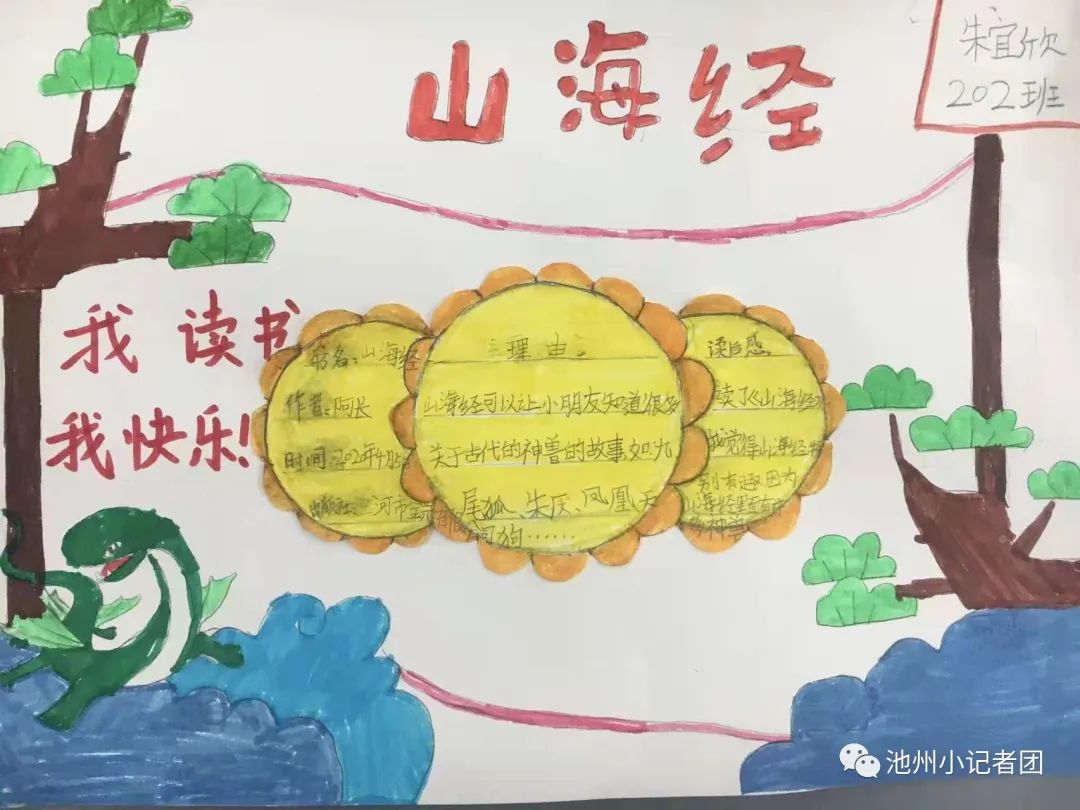 山海经
朱宜欣
202班
我读书
我快乐!
书名:山海经
作者:阿长
时间:202年4月5
河市宝
理由:
山海经可以让小朋友知道很多
关于古代的神兽的故事如九
尾狐、朱厌、凤凰、天
狗……
读后感
读了《山海经》
我觉得山海经特
别有趣因为
山海经里面有
神兽
池州小记者团